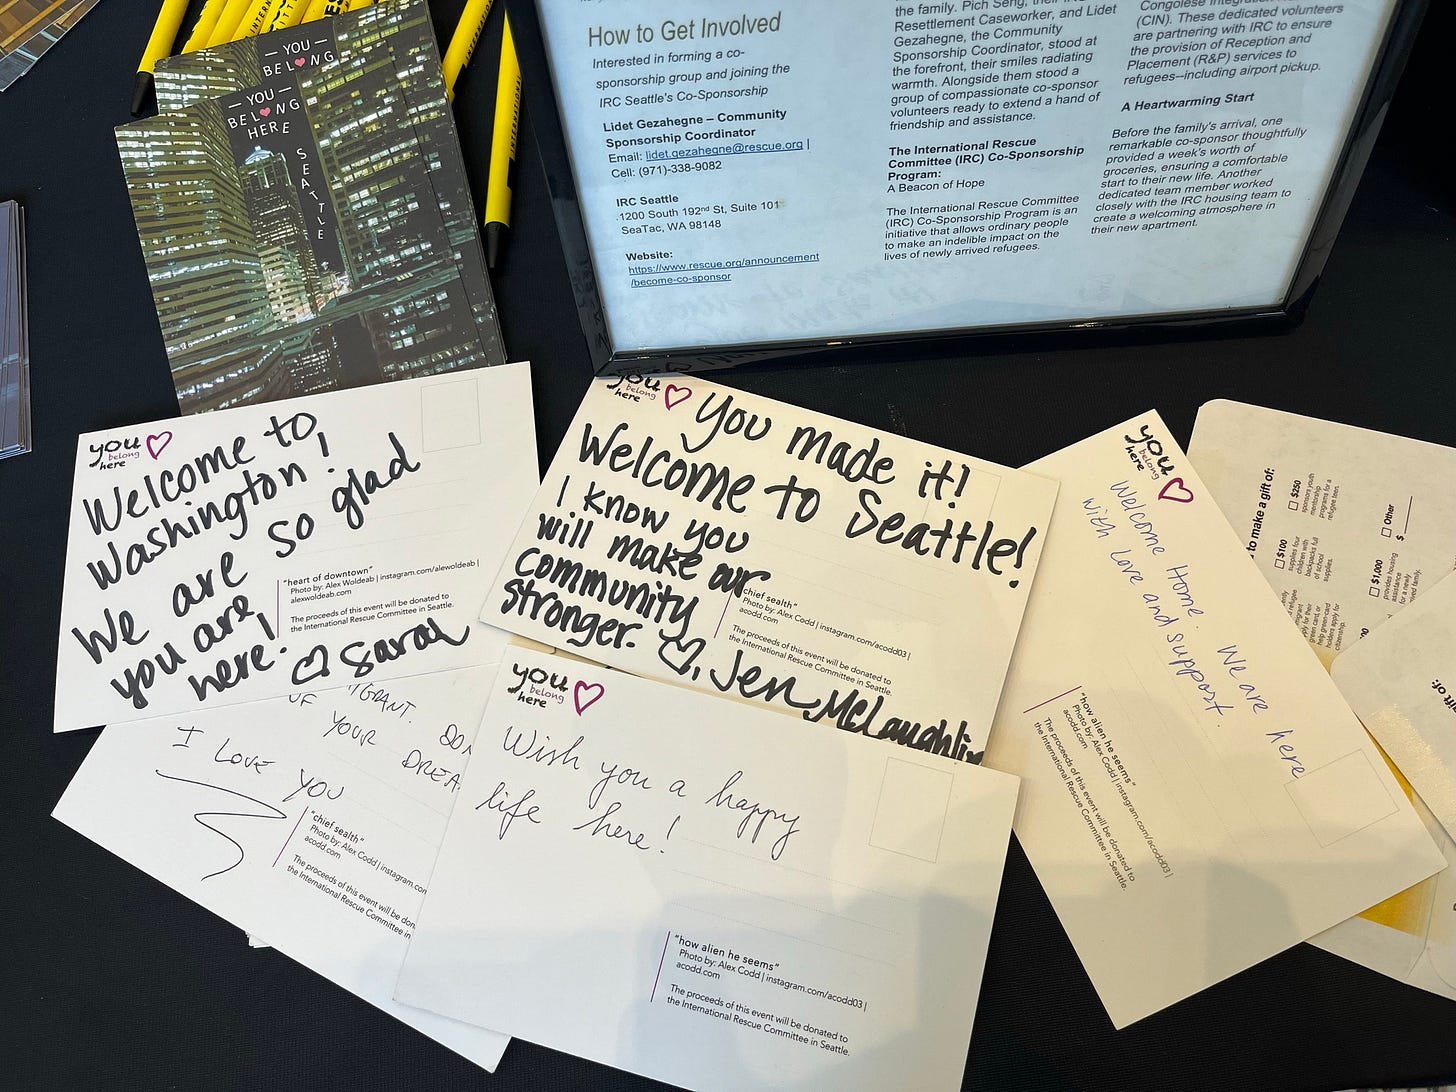 — YOU —
BEL♥NG
— YOU —
BEL♥NG
HERE
SEATTLE
INTERNATIONAL
How to Get Involved
Interested in forming a co-
sponsorship group and joining the
IRC Seattle's Co-Sponsorship
Lidet Gezahegne – Community
Sponsorship Coordinator
Email: lidet.gezahegne@rescue.org |
Cell: (971)-338-9082
IRC Seattle
1200 South 192nd St, Suite 101
SeaTac, WA 98148
Website:
https://www.rescue.org/announcement
/become-co-sponsor
the family. Pich Seng, their
Resettlement Caseworker, and Lidet
Gezahegne, the Community
Sponsorship Coordinator, stood at
the forefront, their smiles radiating
warmth. Alongside them stood a
group of compassionate co-sponsor
volunteers ready to extend a hand of
friendship and assistance.
The International Rescue
Committee (IRC) Co-Sponsorship
Program:
A Beacon of Hope
The International Rescue Committee
(IRC) Co-Sponsorship Program is an
initiative that allows ordinary people
to make an indelible impact on the
lives of newly arrived refugees.
Congolese
(CIN). These dedicated volunteers
are partnering with IRC to ensure
the provision of Reception and
Placement (R&P) services to
refugees–including airport pickup.
A Heartwarming Start
Before the family's arrival, one
remarkable co-sponsor thoughtfully
provided a week's worth of
groceries, ensuring a comfortable
start to their new life. Another
dedicated team member worked
closely with the IRC housing team to
create a welcoming atmosphere in
their new apartment.
you
belong
here
Welcome to
Washington!
We are so glad
you are
here!
♡ Sarah
"heart of downtown"
Photo by: Alex Woldeab | instagram.com/alewoldeab |
alexwoldeab.com
The proceeds of this event will be donated to
the International Rescue Committee in Seattle.
you
belong
here
You made it!
Welcome to Seattle!
I know you
will make our
community
stronger.
♡, Jen McLaughlin
chief sealth"
Photo by: Alex Codd | instagram.com/acodd03 |
acodd.com
The proceeds of this event will be donated to
the International Rescue Committee in Seattle.
you
belong
here
Welcome Home. We are here
with love and support.
"how alien he seems"
Photo by: Alex Codd | instagram.com/acodd03 |
acodd.com
The proceeds of this event will be donated to
the International Rescue Committee in Seattle.
to make a gift of:
$250
sponsors youth
mentorship
programs for a
refugee teen.
$100
supplies four
children with
backpacks full
of school
supplies.
Other
$
$1,000
provides housing
assistance
for a newly
family.
help green card
holders apply for
citizenship.
gift of:
OF YOUR
I LOVE YOU
"chief sealth"
Photo by: Alex Codd | instagram.com
acodd.com
The proceeds of this event will be don
the International Rescue Committee in
you
belong
here
Wish you a happy
life here!
"how alien he seems"
Photo by: Alex Codd | instagram.com/acodd03 |
acodd.com
The proceeds of this event will be donated to
the International Rescue Committee in Seattle.